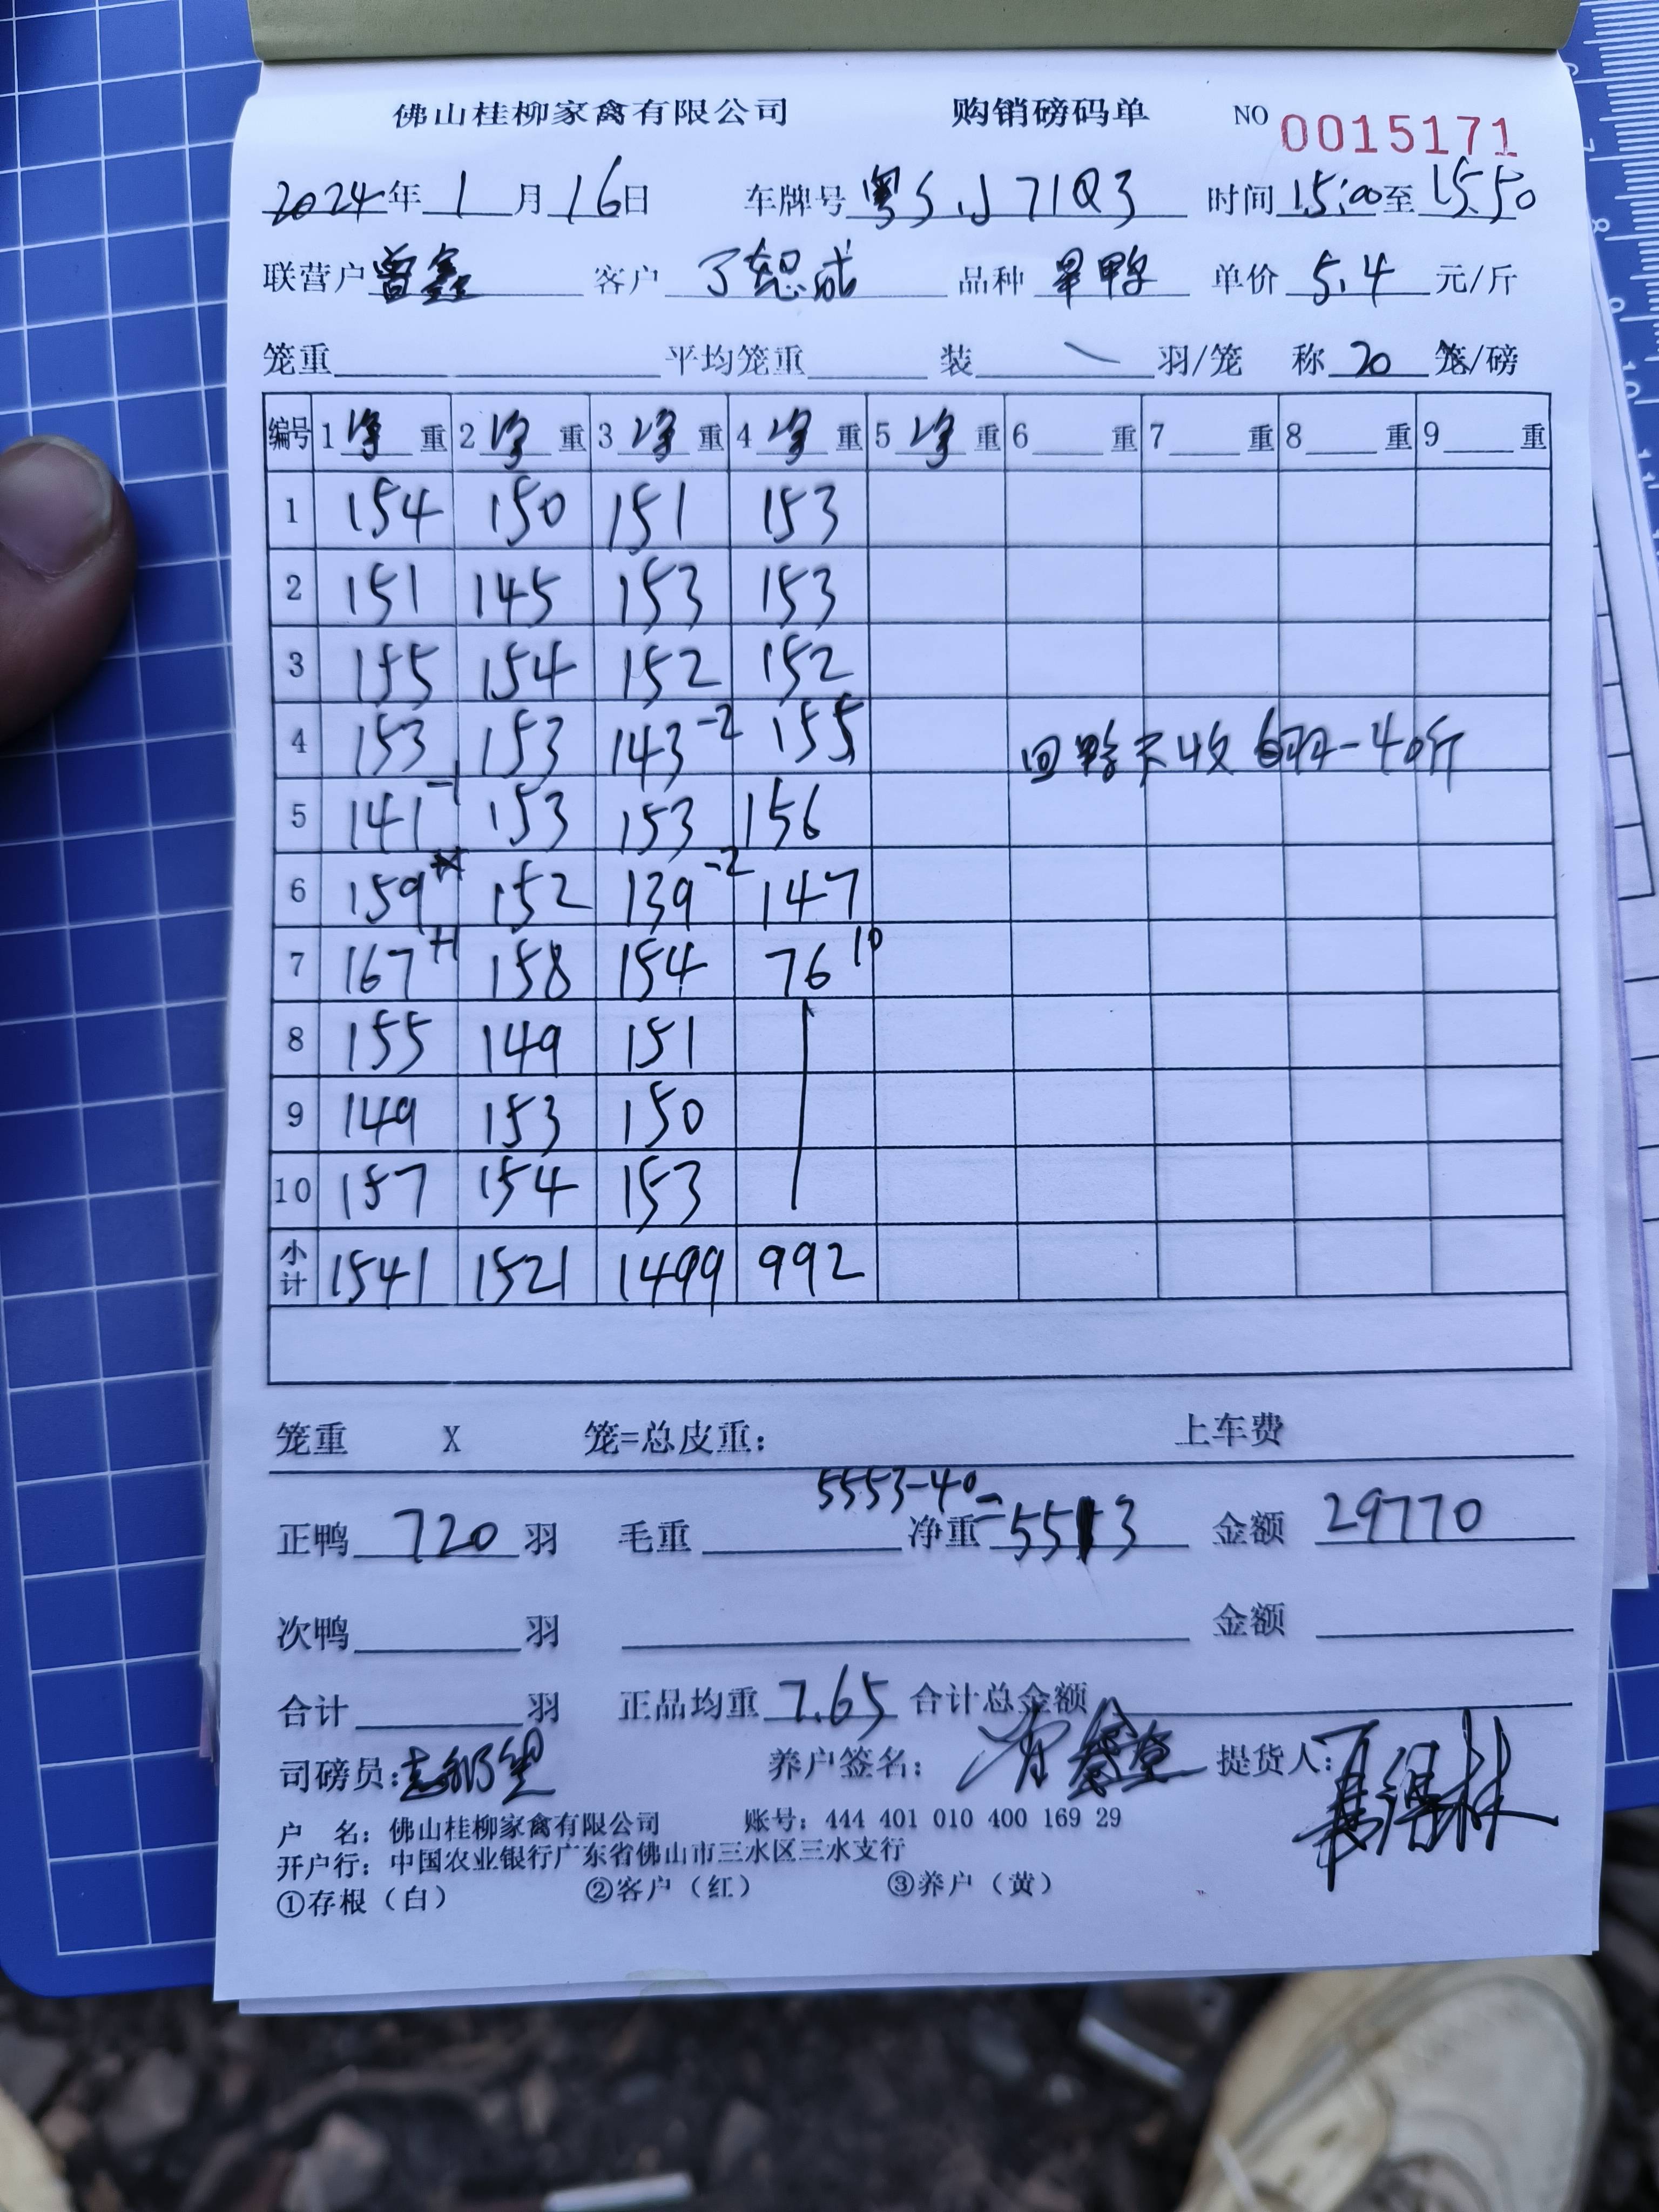 佛山桂柳家禽有限公司 购销磅码单 NO 0015171
2024年1月16日 车牌号粤SJ71Q3 时间15:00至15:50
联营户曾鑫 客户 成 品种 单价5.4元/斤
笼重 平均笼重 装 羽/笼 称20 /磅
编号 1净重 2净重 3净重 4净重 5净重 6 重 7 重 8 重 9 重
1 154 150 151 153
2 151 145 153 153
3 155 154 152 152
4 153 153 143-2 155 回鸭不收6羽-40斤
5 141-1 153 153 156
6 159 152 139-2 147
7 167+1 158 154 76 10
8 155 149 151
9 149 153 150
10 157 154 153
小计 1541 1521 1499 992
笼重 X 笼=总皮重: 上车费
5553-40=
正鸭720羽 毛重 净重5513 金额29770
次鸭 羽 金额
合计 羽 正品均重7.65 合计总金额
司磅员: 养户签名: 提货人:
户 名: 佛山桂柳家禽有限公司 账号: 444 401 010 400 169 29
开户行: 中国农业银行广东省佛山市三水区三水支行
①存根（白） ②客户（红） ③养户（黄）